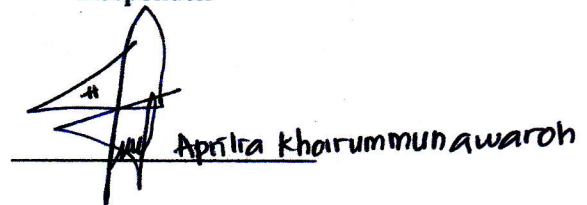 Aprilra Khoirummunawaroh